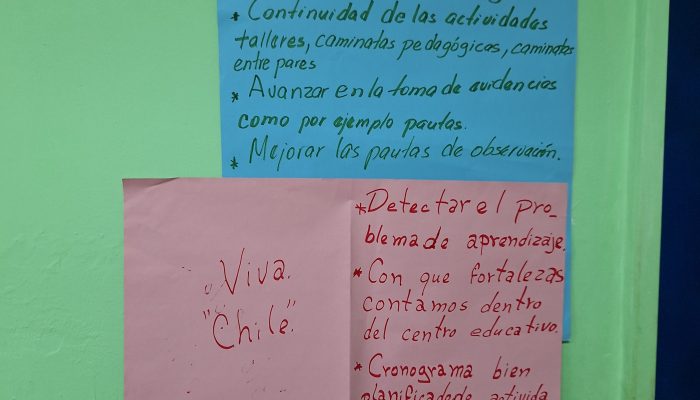 * Continuidad de las actividades
talleres, caminatas pedagógicas, caminatas
entre pares
* Avanzar en la toma de evidencias
como por ejemplo pautas.
* Mejorar las pautas de observación.
Viva.
"Chile".
* Detectar el pro_
blema de aprendizaje.
* Con que fortalezas
contamos dentro
del centro educativo.
* Cronograma bien
planificado de activida